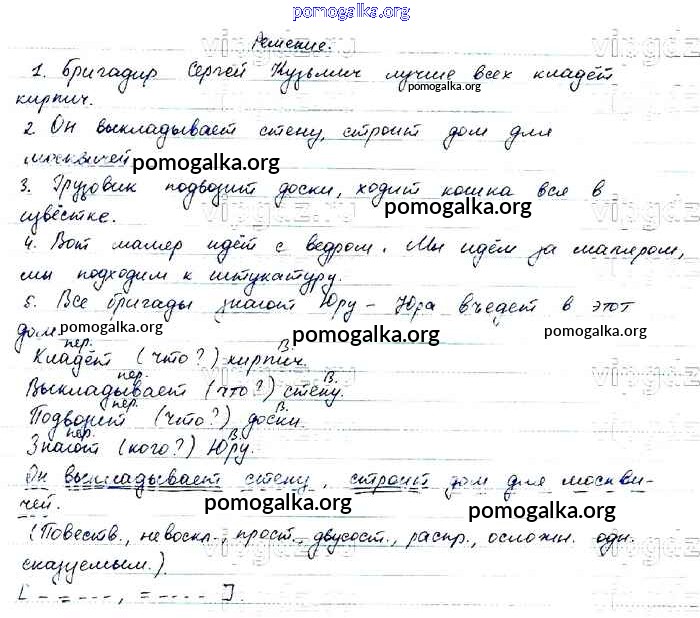 pomogalka.org
Решение.
1. Бригадир Сергей Кузьмич лучше всех кладёт
pomogalka.org
кирпич.
2 Он выкладывает стену, строит дом для
москвичей pomogalka.org
3. Грузовик подвозит доски, ходит кошка вся в
извёстке. pomogalka.org
4. Вот маляр идёт с ведром. Мы идём за маляром,
мы подходим к штукатуру.
5. Все бригады знают Юру – Юра въедет в этот
дом pomogalka.org pomogalka.org pomogalka.org
пер. В.
Кладёт (что?) кирпич.
пер. В.
Выкладывает (что?) стену.
пер. В.
Подвозит (что?) доски.
пер. В.
Знают (кого?) Юру.
Он выкладывает стену, строит дом для москви-
чей. pomogalka.org
(Повеств., невоскл., прост., двусост., распр., осложн. одн.
pomogalka.org
сказуемым.).
[ - = -·-· , = -·-· ].